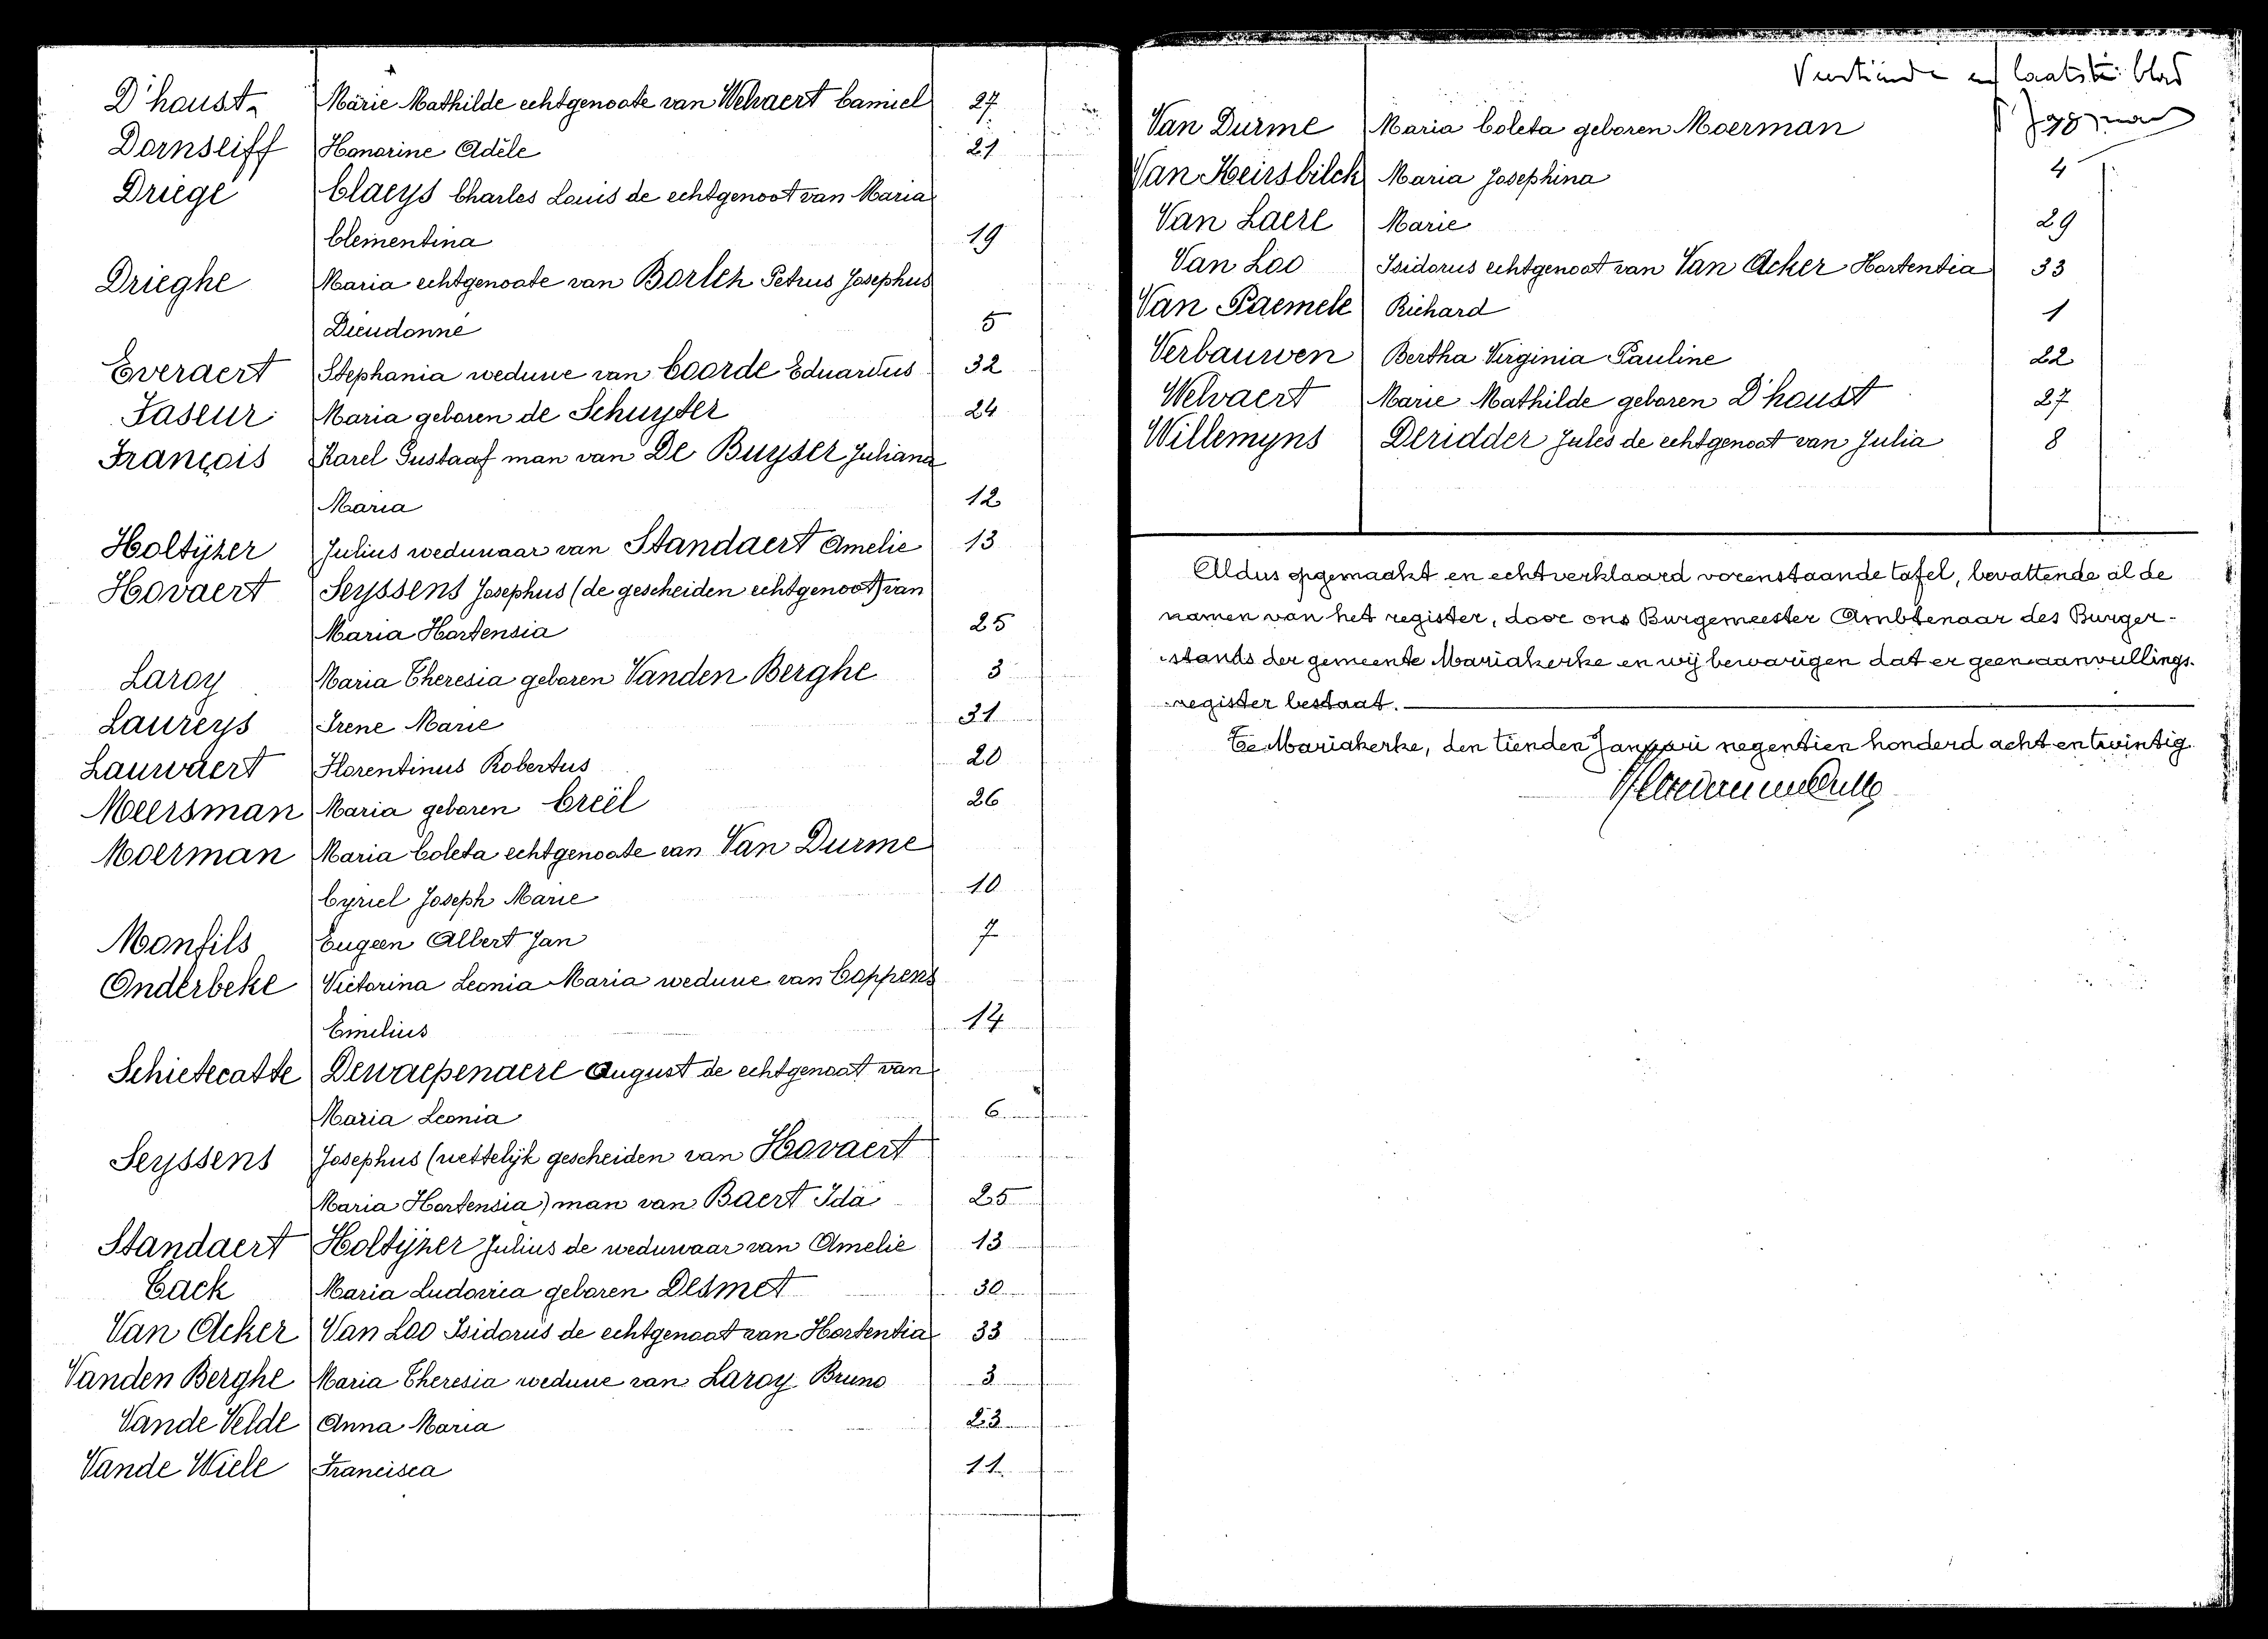 D'haust Marie Mathilde echtgenoote van Welvaert Camiel 27
Dornseiff Honorine Adèle 21
Driege Claeys Charles Louis de echtgenoot van Maria
Clementina 19
Drieghe Maria echtgenoote van Borlch Petrus Josephus
Dieudonné 5
Everaert Stephania weduwe van Coorde Eduardus 32
Faseur Maria geboren de Schuyter 24
François Karel Gustaaf man van De Buyser Juliana
Maria 12
Holtÿzer Julius weduwaar van Standaert Amelie 13
Hovaert Seyssens Josephus (de gescheiden echtgenoot) van
Maria Hortensia 25
Laroy Maria Theresia geboren Vanden Berghe 3
Laureys Irene Marie 31
Lauwaert Florentinus Robertus 20
Meersman Maria geboren Creël 26
Moerman Maria Coleta echtgenoote van Van Durme
Cyriel Joseph Marie 10
Monfils Eugeen Albert Jan 7
Onderbeke Victorina Leonia Maria weduwe van Coppens
Emilius 14
Schietecatte Dewaepenaere August de echtgenoot van
Maria Leonia 6
Seyssens Josephus (wettelijk gescheiden van Hovaert
Maria Hortensia) man van Baert Ida 25
Standaert Holtÿzer Julius de weduwaar van Amelie 13
Tack Maria Ludovica geboren Desmet 30
Van Acker Van Loo Isidorus de echtgenoot van Hortentia 33
Vanden Berghe Maria Theresia weduwe van Laroy Bruno 3
Vande Velde Anna Maria 23
Vande Wiele Francisca 11
en laatste blad
Van Durme Maria Coleta geboren Moerman
Van Heirsbilck Maria Josephina 4
Van Laere Marie 29
Van Loo Isidorus echtgenoot van Van Acker Hortentia 33
Van Paemele Richard 1
Verbauwen Bertha Virginia Pauline 22
Welvaert Marie Mathilde geboren D'haust 27
Willemyns Deridder Jules de echtgenoot van Julia 8
Aldus opgemaakt en echtverklaard vorenstaande tafel, bevattende al de
namen van het register, door ons Burgemeester Ambtenaar des Burger-
stands der gemeente Mariakerke en wij bewarigen dat er geen aanvullings-
register bestaat.
Te Mariakerke, den tienden Januari negentien honderd acht en twintig.